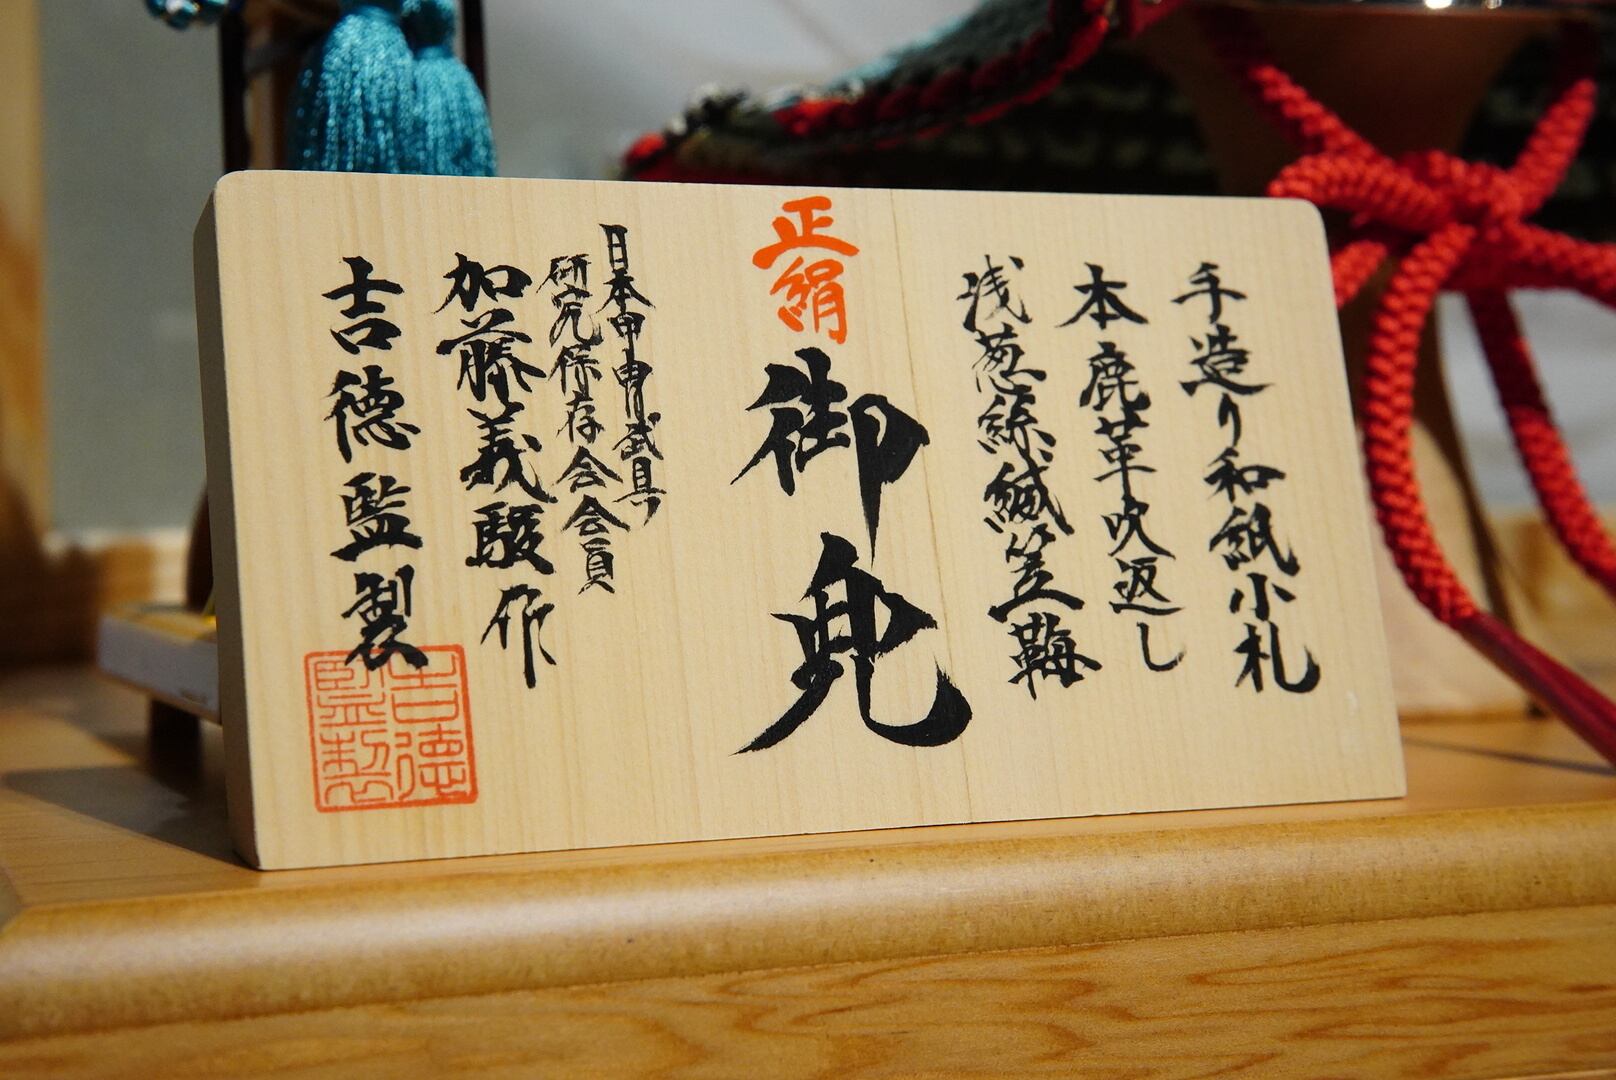 手造り和紙小札
本鹿革吹返し
浅葱綛縅笠鞠
正絹
御兜
日本甲冑武具
研究保存会会員
加藤義駿作
吉德監製
吉德監製